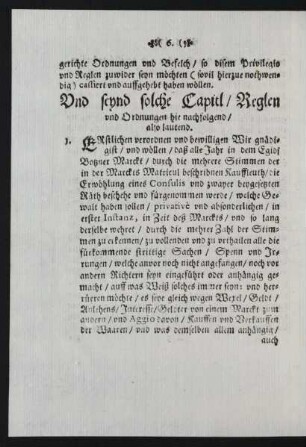 6.
gerichte Ordnungen vnd Befelch / so disem Privilegio
vnd Reglen zuwider seyn möchten ( sovil hierzue nothwen-
dig ) cassiert vnd auffgehebt haben wöllen.
Vnd seynd solche Capitl / Reglen
vnd Ordnungen hie nachfolgend /
also lautend.
1. ERstlichen verordnen vnd bewilligen Wir gnädi-
gist / vnd wöllen / daß alle Jahr in dem Egidj
Botzner Marckt / durch die mehrere Stimmen der
in der Marckts Matricul beschribnen Kauffleuth / die
Erwöhlung eines Consulis vnd zwayer beygesetzten
Räth beschehe vnd fürgenommen werde / welche Ge-
walt haben sollen / privativè vnd absonderlichen / in
erster Instanz, in Zeit deß Marckts / vnd so lang
derselbe wehret / durch die mehrer Zahl der Stim-
men zu erkennen / zu vollenden vnd zu vrthailen alle die
fürkommende strittige Sachen / Spenn vnd Ir-
rungen / welche anvor noch nicht angefangen / noch vor
andern Richtern seyn eingeführt oder anhängig ge-
macht / auff was Weiß solches immer seyn: vnd her-
rüeren möchte / es seye gleich wegen Wexel / Geldt /
Anlehens / Interesse / Geltter von einem Marckt zum
andern / vnd Aggio davon / Kauffen vnd Verkauffen
der Waaren / vnd was demselben allem anhängig /
auch